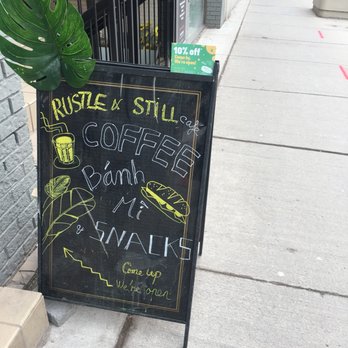 10% off
RUSTLE & STILL café
COFFEE
Bánh
Mì
& SNACKS
Come Up
We're open